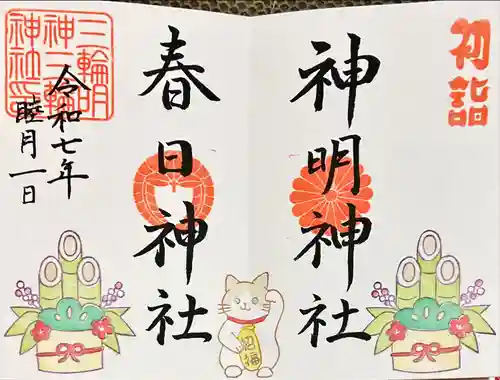 初詣
神明神社
春日神社
令和七年
睦月一日
三輪明
神二輪
神社
招福